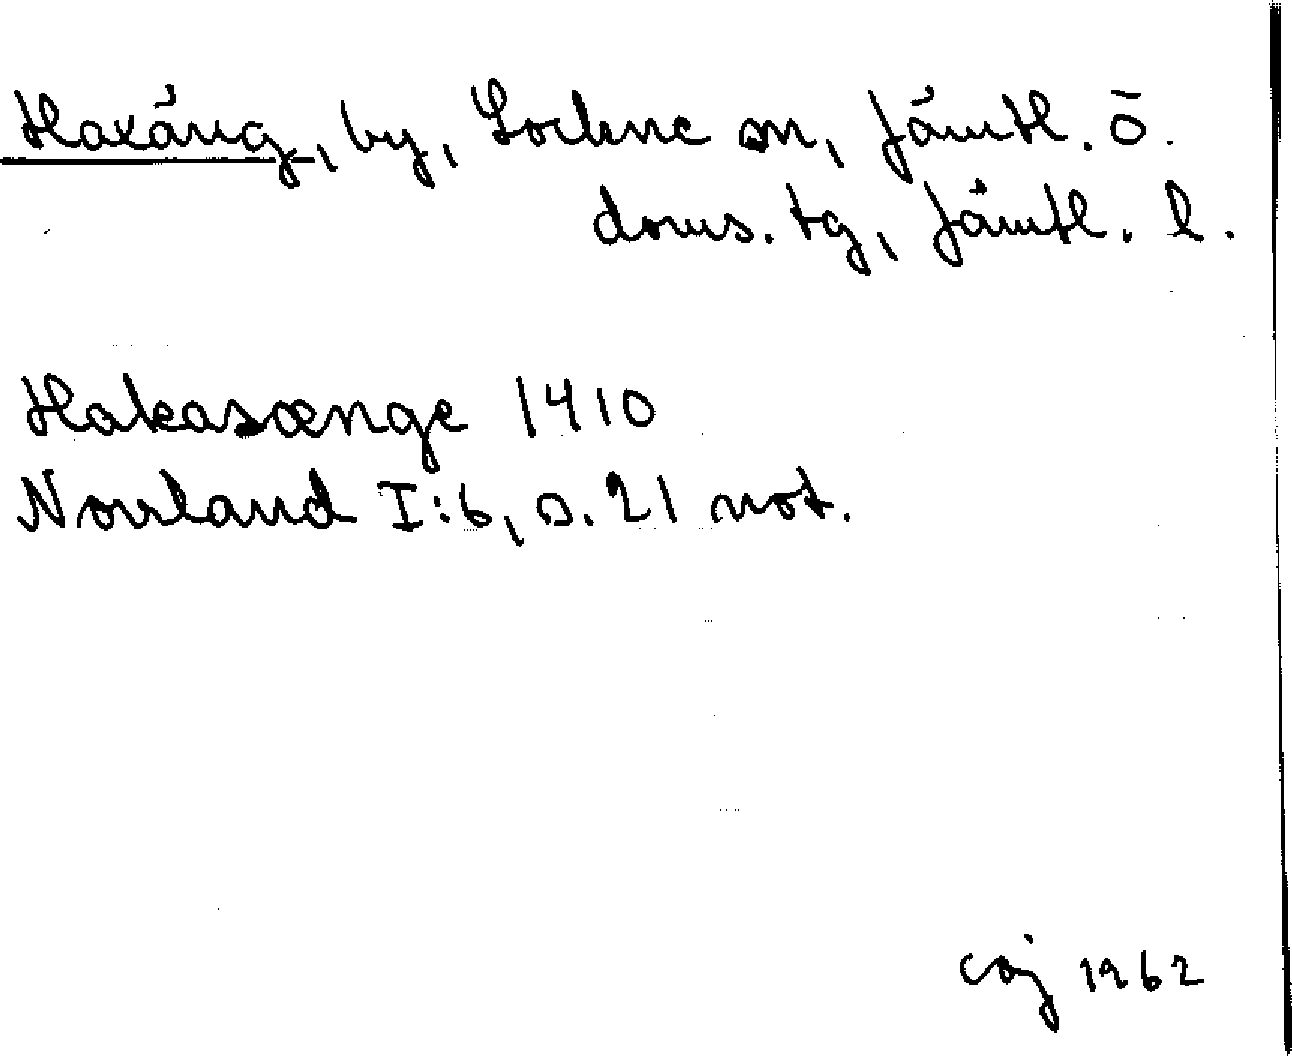 Haxäng, by, Lockne sn, Jämtl. ö.
doms. tg, Jämtl. l.
Hakasænge 1410
Norrland I:6, s. 21 not.
caj 1962